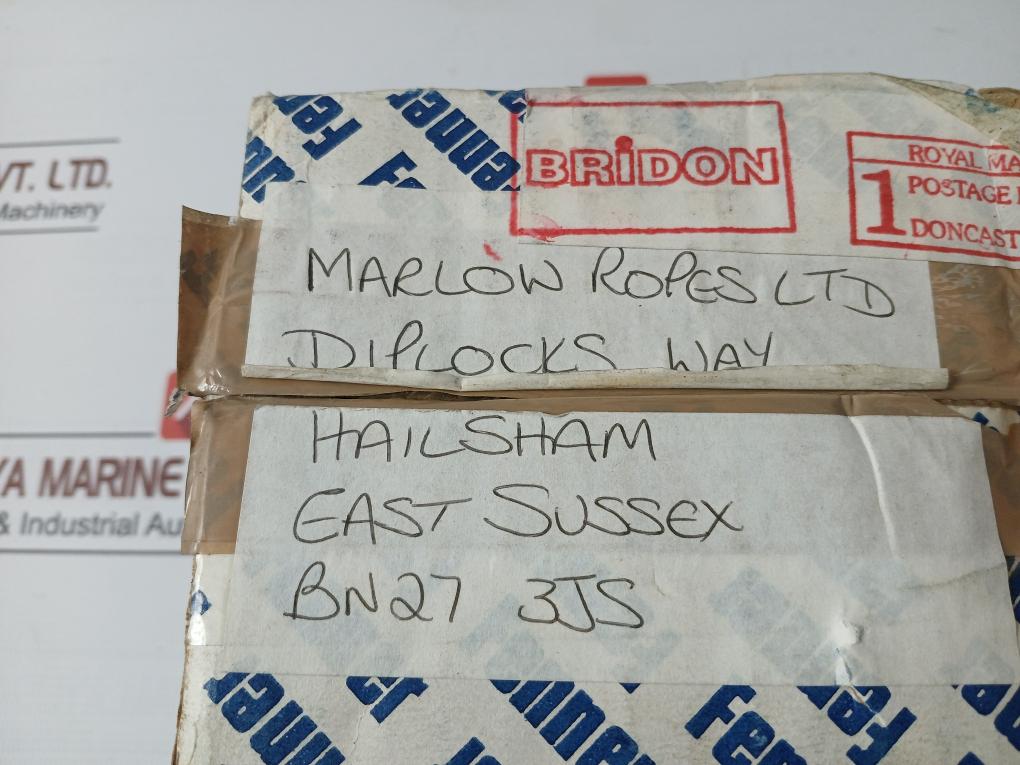 VT. LTD.
Machinery
YA MARINE
& Industrial Au
Fenner
Fenner
BRiDON
ROYAL MA
1 POSTAGE
DONCAST
MARLOW ROPES LTD
DIPLOCKS WAY
HAILSHAM
EAST SUSSEX
BN27 3JS
Fenner
Fenner